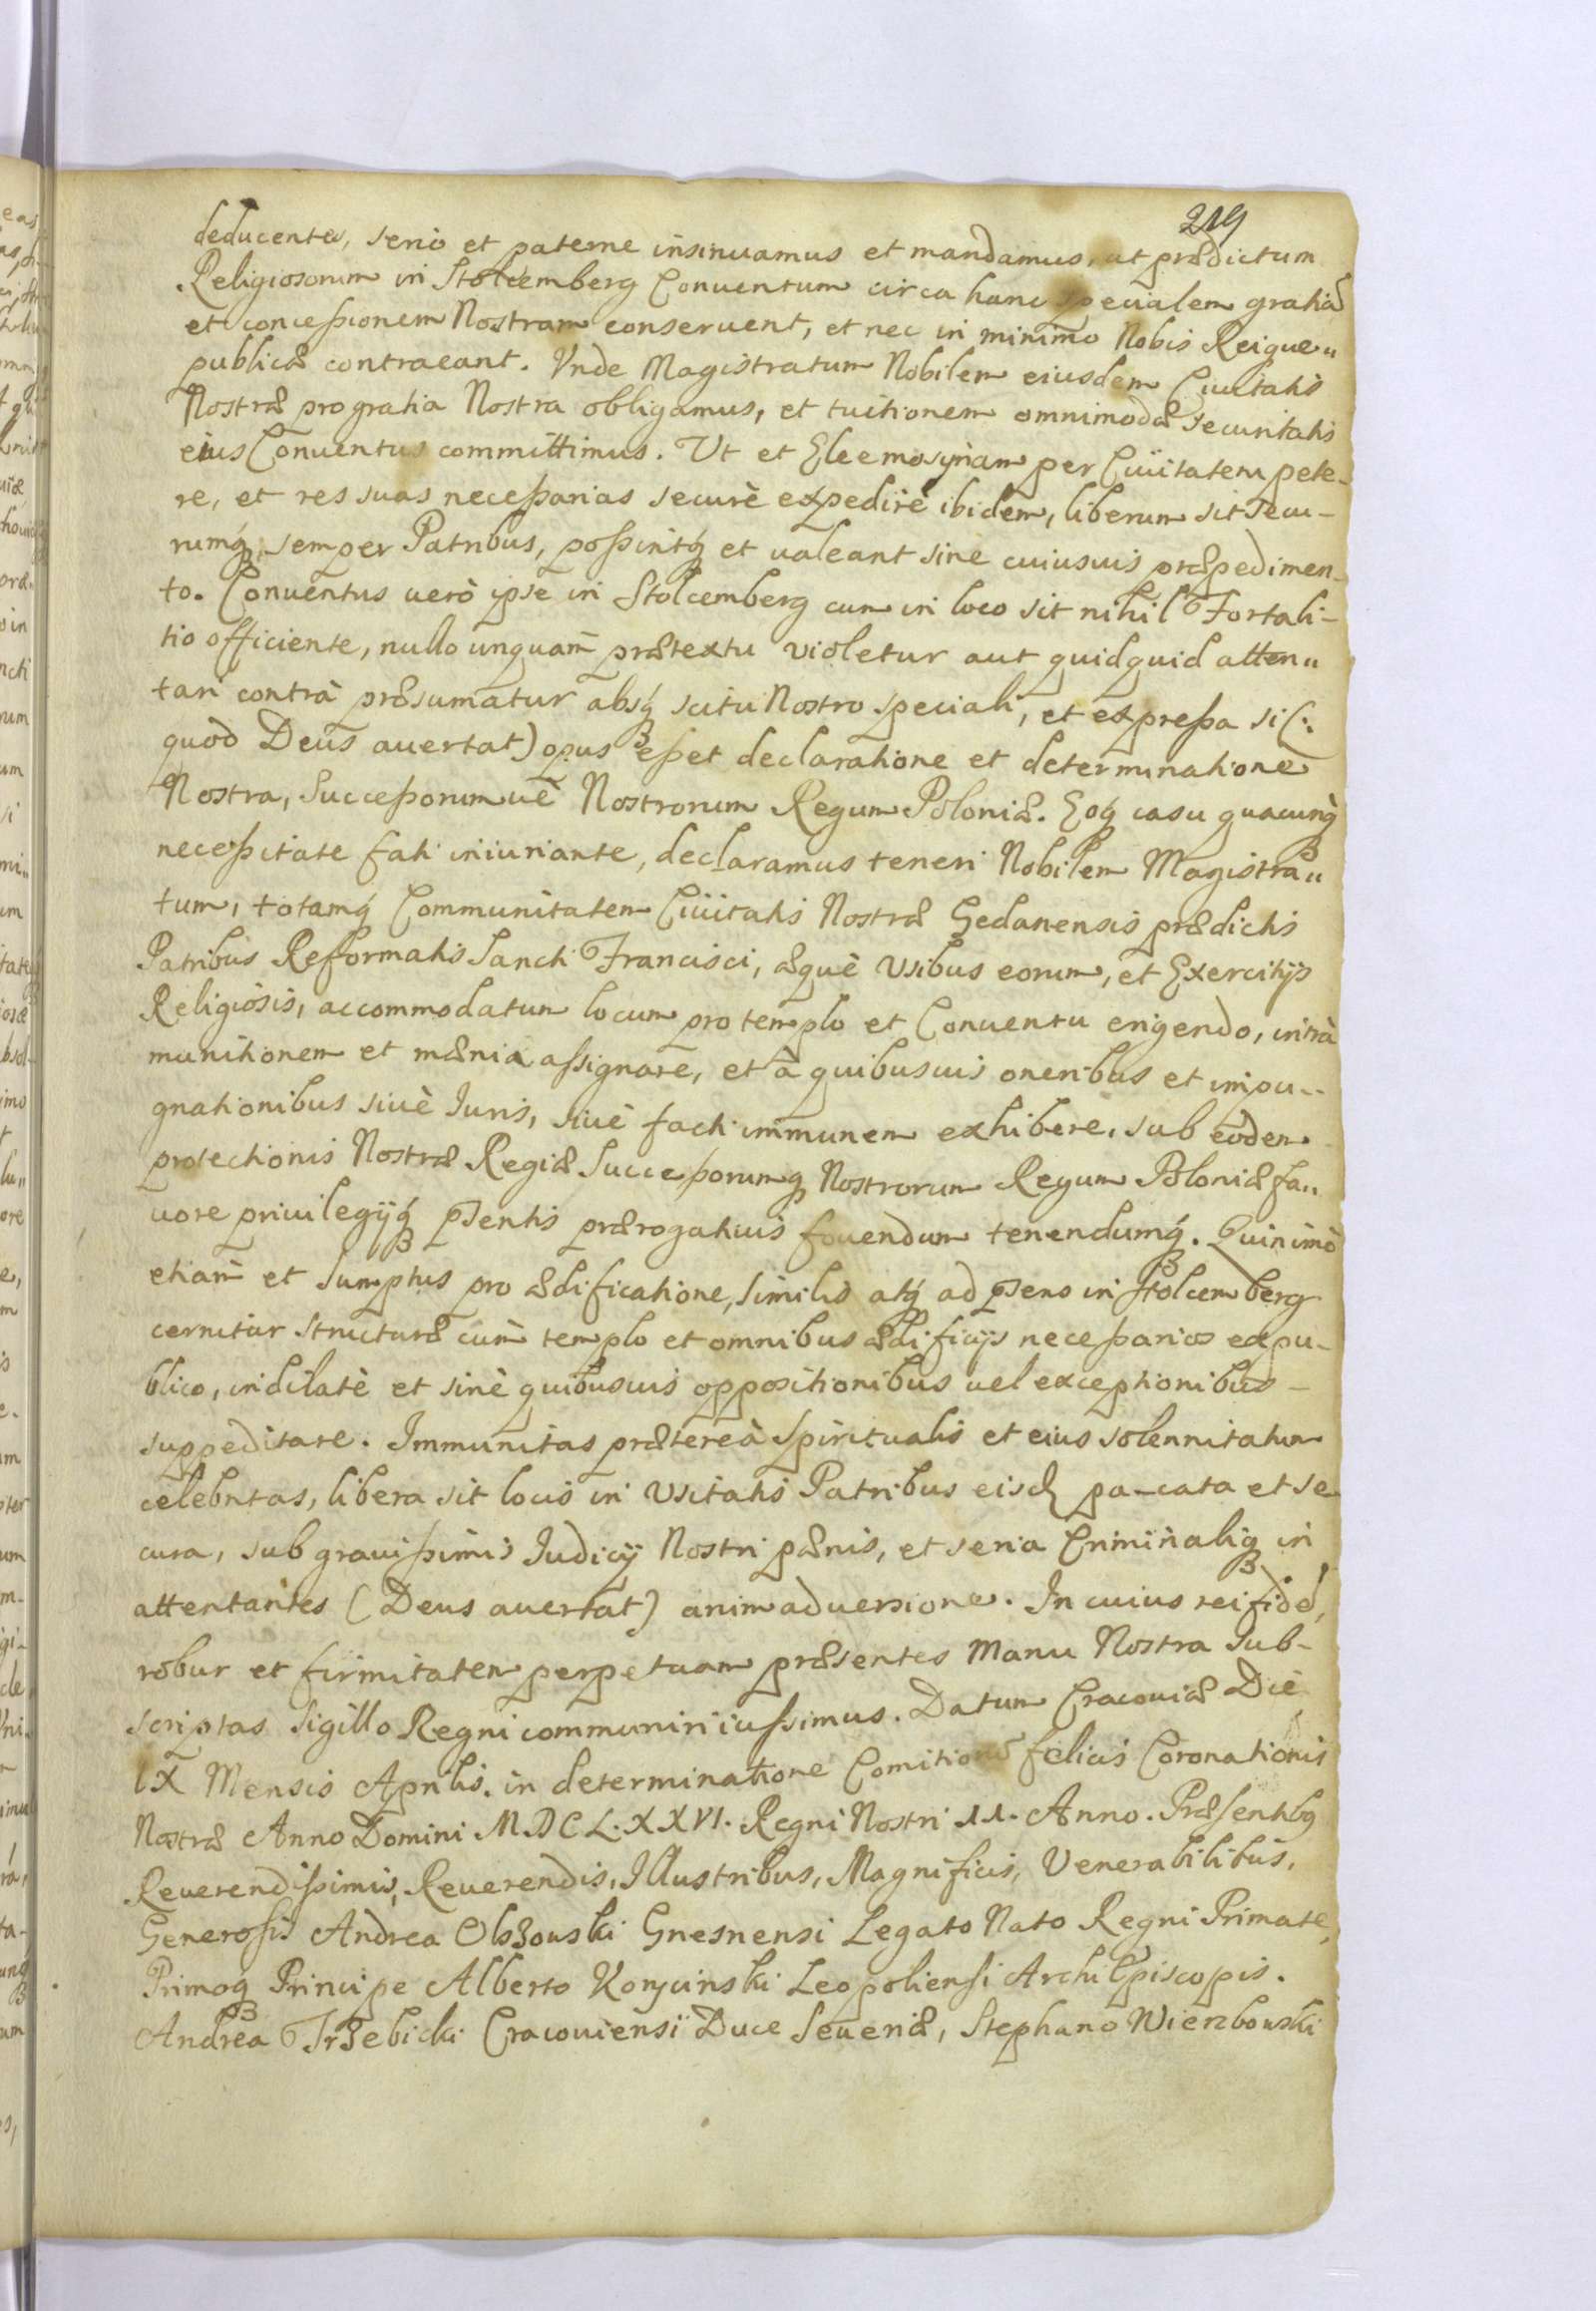 219
deducentes, serio et paterne insinuamus et mandamus, ut prædictum
Religiosorum in Stolcemberg Conuentum circa hanc specialem gratiã
et concessionem Nostram conseruent, et nec in minimo Nobis Reique„
publicæ contraeant. Vnde Magistratum Nobilem eiusdem Ciuitatis
Nostræ pro gratia Nostra obligamus, et tuitionem omnimodæ securitatis
eius Conuentus committimus. Vt et Eleemosynam per Ciuitatem pete-
re, et res suas necessarias securè expedire ibidem, liberum sit secu-
rumq́ꝫ semper Patribus, possintq́ꝫ et ualeant sine cuiusuis præpedimen-
to. Conuentus uerò ipse in Stolcemberg cum in loco sit nihil Fortali-
tio officiente, nullo unquam prætextu violetur aut quidquid atten„
tari contrà præsumatur absq́ꝫ scitu Nostro speciali, et expressa si (:
quod Deus auertat) opus esset declaratione et determinatione
Nostra, Successorumuè Nostrorum Regum Poloniæ. Eoq́ꝫ casu quacunq́ꝫ
necessitate fati iniuriante, declaramus teneri Nobilem Magistra„
tum, totamq́ꝫ Communitatem Ciuitatis Nostræ Gedanensis prædictis
Patribus Reformatis Sancti Francisci, æquè Vsibus eorum, et Exercitijs
Religiosis, accommodatum locum pro templo et Conuentu erigendo, intrà
munitionem et mænia assignare, et à quibusuis oneribus et impu--
gnationibus siuè Iuris, siuè facti immunem exhibere, sub eodem
protectionis Nostræ Regiæ Successorumqꝫ Nostrorum Regum Poloniæ fa„
uore priuilegijq́ꝫ p̃sentis prærogatiuis fouendum tenendumq́ꝫ. Quinimò
etiam et Sumptus pro ædificatione, similis atq́ꝫ ad p̃sens in Stolcemberg
cernitur structuræ cum templo et omnibus ædificijs necessarios ex pu-
blico, indilatè et sinè quibusuis oppositionibus uel exceptionibus-
suppeditare. Immunitas prætereà Spiritualis et eius solennitatum
celebritas, libera sit locis in Vsitatis Patribus eisd̃ pa-cata et se
cura, sub grauissimis Iudicij Nostri pænis, et seria Criminaliqꝫ in
attentantes (Deus auertat) animaduersione. In cuius rei fidẽ,
robur et firmitatem perpetuam præsentes Manu Nostra sub-
scriptas Sigillo Regni communiri iussimus. Datum Cracouiæ Die
IX Mensis Aprilis. in determinatione Comitiorũ felicis Coronationis
Nostræ Anno Domini M.DC L.XXVI. Regni Nostri 11. Anno. Præsentibꝫ
Reuerendissimis, Reuerendis, Illustribus, Magnificis, Venerabilibus,
Generosis Andrea Olszouski Gnesnensi Legato Nato Regni Primate,
Primoqꝫ Principe Alberto Korycinski Leopoliensi Archi Episcopis.
Andrea Trzebicki Cracouiensi Duce Seueriæ, Stephano Wierzbouski